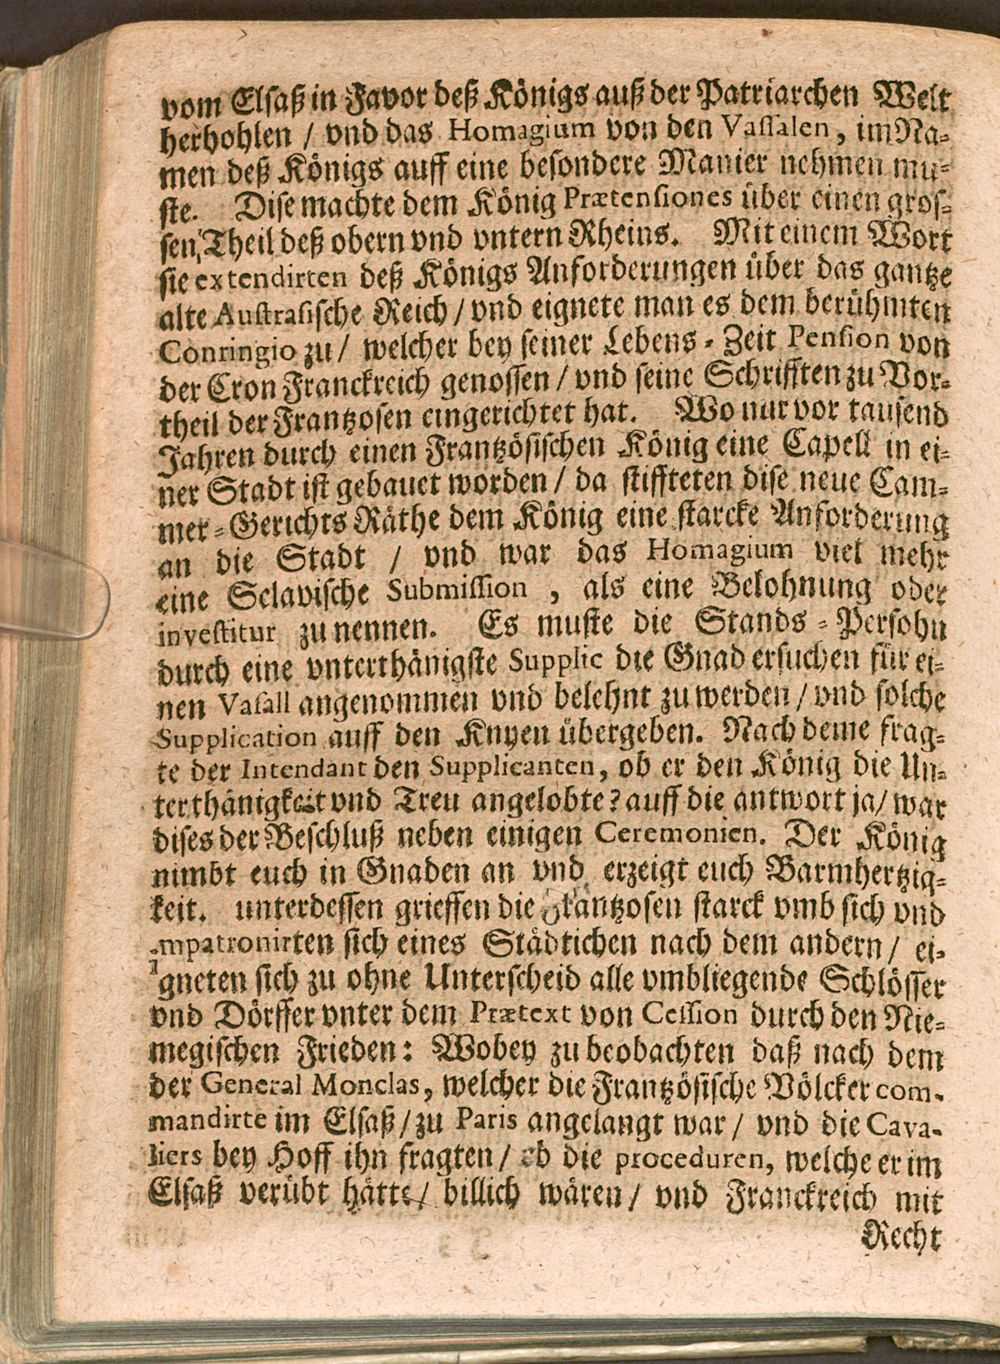 vom Elsaß in Favor deß Königs auß der Patriarchen Welt
herhohlen / vnd das Homagium von den Vassalen, im Na-
men deß Königs auff eine besondere Manier nehmen mu-
ste. Dise machte dem König Prætensiones über einen gros-
sen Theil deß obern vnd vntern Rheins. Mit einem Wort
sie extendirten deß Königs Anforderungen über das gantze
alte Austrasische Reich / vnd eignete man es dem berühmten
Conringio zu / welcher bey seiner Lebens-Zeit Pension von
der Cron Franckreich genossen / vnd seine Schrifften zu Vor-
theil der Frantzosen eingerichtet hat. Wo nur vor tausend
Jahren durch einen Frantzösischen König eine Capell in ei-
ner Stadt ist gebauet worden / da stiffteten dise neue Cam-
mer-Gerichts Räthe dem König eine starcke Anforderung
an die Stadt / vnd war das Homagium viel mehr
eine Sclavische Submission , als eine Belohnung oder
investitur zu nennen. Es muste die Stands-Persohn
durch eine vnterthänigste Supplic die Gnad ersuchen für ei-
nen Vasall angenommen vnd belehnt zu werden / vnd solche
Supplication auff den Knyen übergeben. Nach deme frag-
te der Intendant den Supplicanten, ob er den König die Un-
terthänigkeit vnd Treu angelobte? auff die antwort ja/ war
dises der Beschluß neben einigen Ceremonien. Der König
nimbt euch in Gnaden an vnd erzeigt euch Barmhertzig-
keit. unterdessen grieffen die Frantzosen starck vmb sich vnd
impatronirten sich eines Städtichen nach dem andern / ei-
gneten sich zu ohne Unterscheid alle vmbliegende Schlösser
vnd Dörffer vnter dem Prætext von Cession durch den Nie-
megischen Frieden: Wobey zu beobachten daß nach dem
der General Monclas, welcher die Frantzösische Völcker com-
mandirte im Elsaß / zu Paris angelangt war / vnd die Cava-
liers bey Hoff ihn fragten / ob die proceduren, welche er im
Elsaß verübt hätte / billich wären / vnd Franckreich mit
Recht